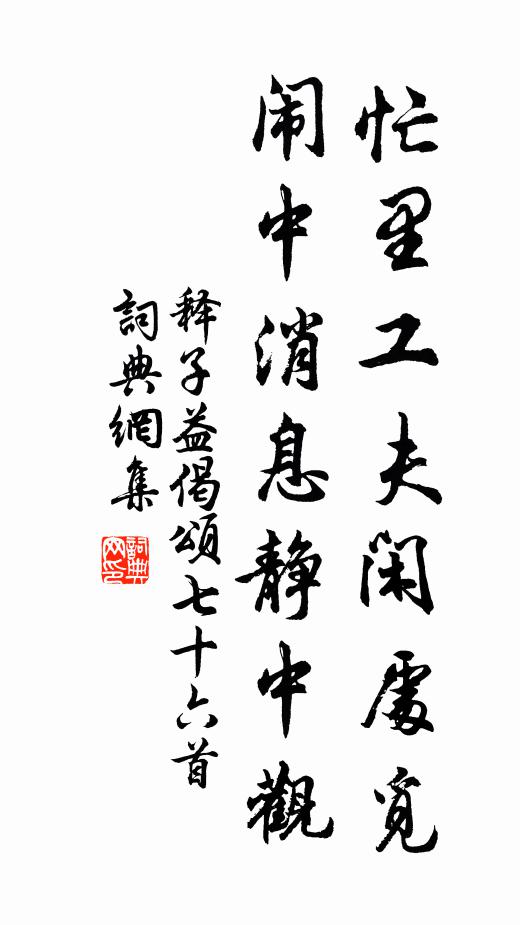 忙里工夫闲處覓
闹中消息静中觀
释子益偈頌七十六首
詞典網集
詞典网印